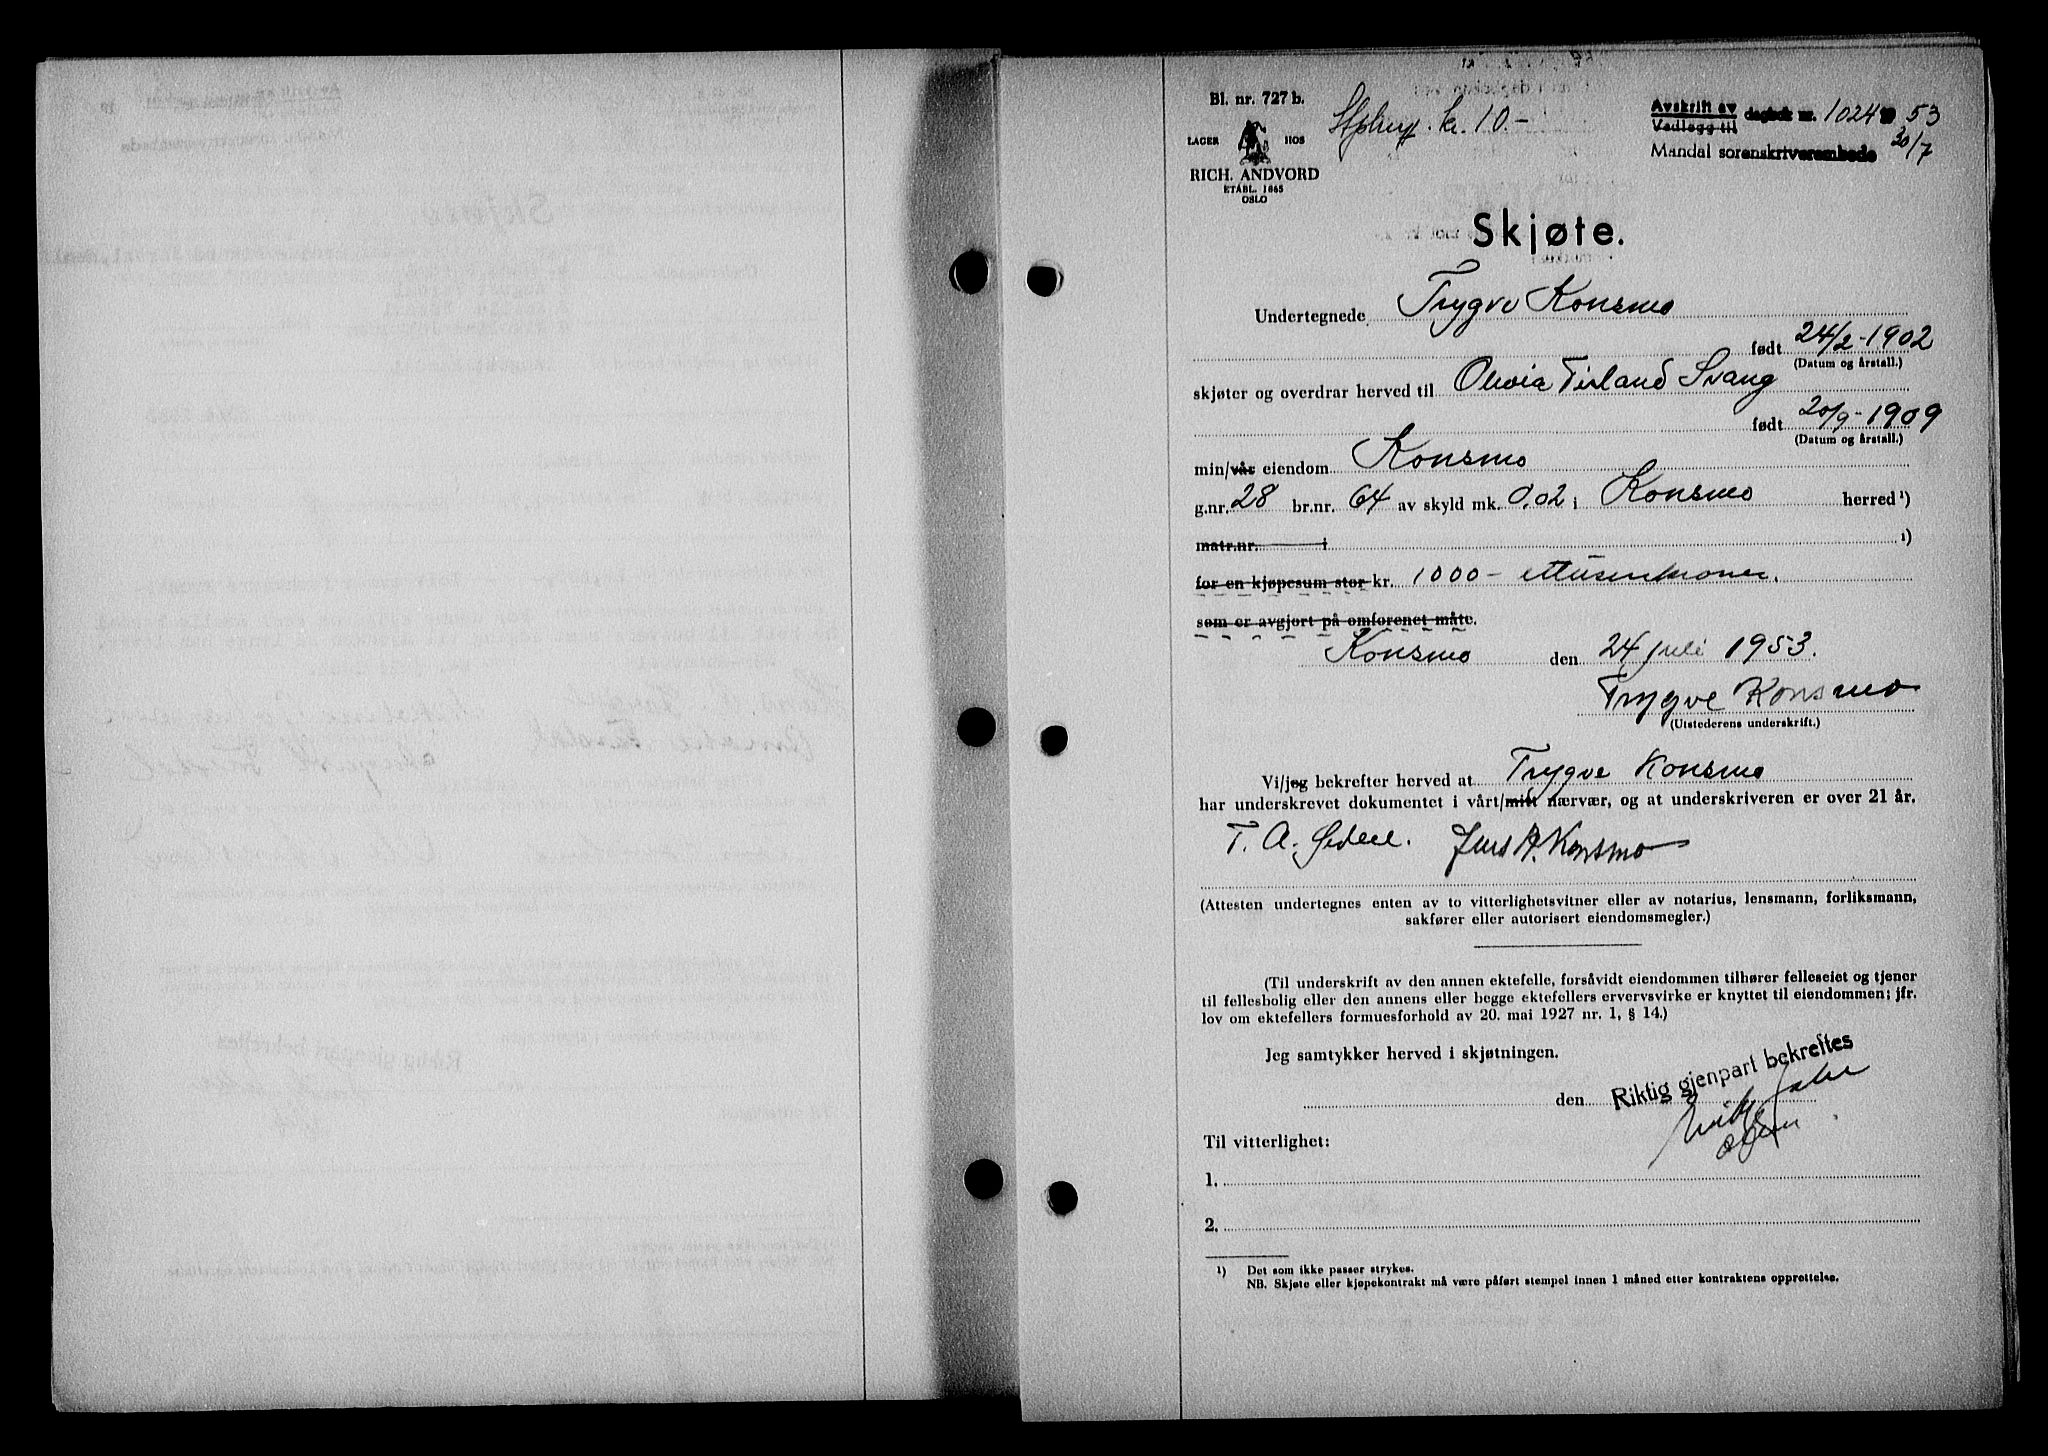 Bl. nr. 727 b.
LAGER HOS
RICH. ANDVORD
ETABL. 1865
OSLO
kr. 10.-
Avskrift av
Vedlegg til dagbok nr. 1024 1953
Mandal sorenskriverembede 30/7
Skjøte.
Undertegnede Trygve Konsmo
født 24/2-1902
(Datum og årstall.)
skjøter og overdrar herved til Olivia Tisland Svang
født 20/9-1909
(Datum og årstall.)
min/vår eiendom Konsmo
g.nr. 28 br.nr. 64 av skyld mk. 0,02 i Konsmo herred ¹)
matr.nr. i ¹)
for en kjøpesum stor kr. 1000- ettusenkroner.
som er avgjort på omforenet måte.
Konsmo den 24 juli 1953.
Trygve Konsmo
(Utstederens underskrift.)
Vi/jeg bekrefter herved at Trygve Konsmo
har underskrevet dokumentet i vårt/mitt nærvær, og at underskriveren er over 21 år.
T. A. Jens A. Konsmo
(Attesten undertegnes enten av to vitterlighetsvitner eller av notarius, lensmann, forliksmann,
sakfører eller autorisert eiendomsmegler.)
(Til underskrift av den annen ektefelle, forsåvidt eiendommen tilhører felleseiet og tjener
til fellesbolig eller den annens eller begge ektefellers ervervsvirke er knyttet til eiendommen; jfr.
lov om ektefellers formuesforhold av 20. mai 1927 nr. 1, § 14.)
Jeg samtykker herved i skjøtningen.
den
Riktig gjenpart bekreftes
Til vitterlighet:
1.
2.
¹) Det som ikke passer strykes.
NB. Skjøte eller kjøpekontrakt må være påført stempel innen 1 måned etter kontraktens opprettelse.